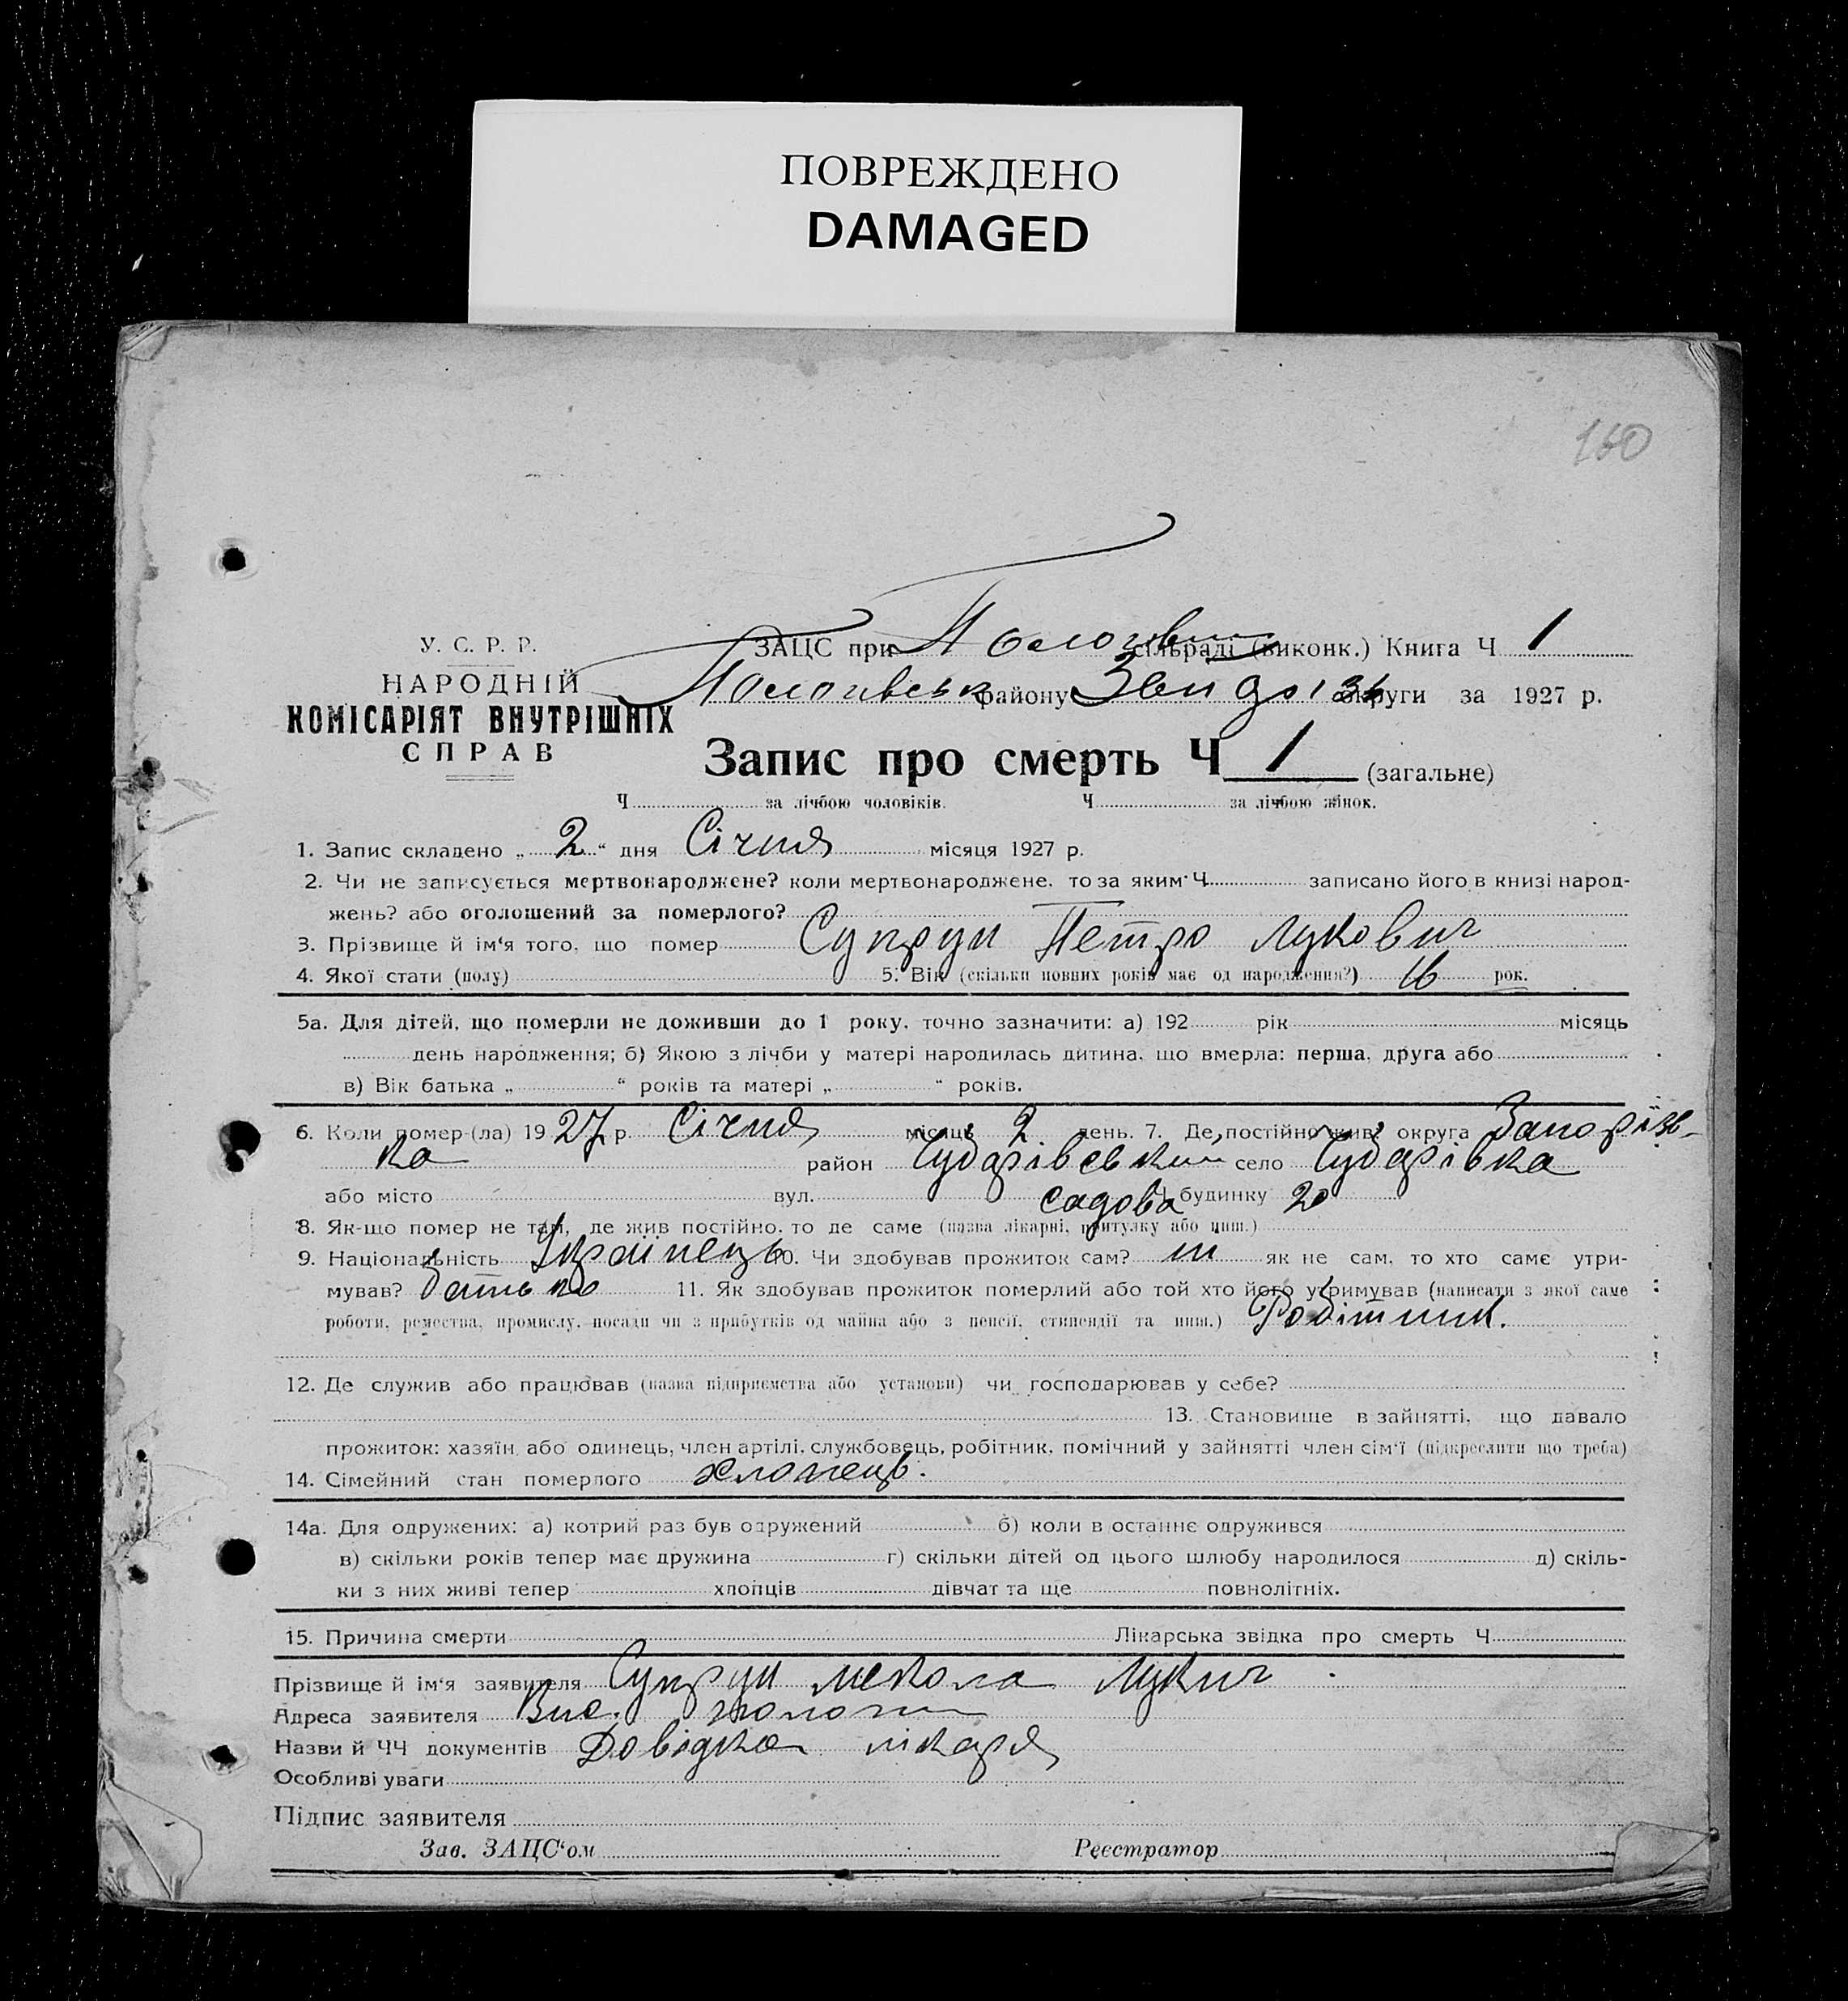 ПОВРЕЖДЕНО
DAMAGED
160
У. С. Р. Р.
НАРОДНІЙ
КОМІСАРІЯТ ВНУТРІШНІХ
СПРАВ
ЗАЦС при Пологівськ сільраді (виконк.) Книга Ч 1
Пологівськ району округи за 1927 р.
Запис про смерть Ч 1 (загальне)
Ч за лічбою чоловіків. Ч за лічбою жінок.
1. Запис складено „ 2 “ дня Січня місяця 1927 р.
2. Чи не записується мертвонароджене? коли мертвонароджене, то за яким Ч записано його в книзі народ-
жень? або оголошений за померлого?
3. Прізвище й ім‘я того, що помер Супрун Петро Лукович
4. Якої стати (полу) 5. Вік (скільки повних років має од народження?) 16 рок.
5а. Для дітей, що померли не доживши до 1 року, точно зазначити: а) 192 рік місяць
день народження; б) Якою з лічби у матері народилась дитина, що вмерла: перша, друга або
в) Вік батька „ “ років та матері „ “ років.
6. Коли помер-(ла) 1927 р. Січня місяць 2 день. 7. Де постійно жив: округа Запорізь-
ка район село
або місто вул. Садова Ч будинку 20
8. Як-що помер не там, де жив постійно, то де саме (назва лікарні, притулку або инш.)
9. Національність Українець 10. Чи здобував прожиток сам? ні як не сам, то хто саме утри-
мував? батько 11. Як здобував прожиток померлий або той хто його утримував (написати з якої саме
роботи, ремества, промислу, посади чи з прибутків од майна або з пенсії, стипендії та инш.) Робітник.
12. Де служив або працював (назва підприємства або установи) чи господарював у себе?
13. Становище в зайнятті, що давало
прожиток: хазяїн, або одинець, член артілі, службовець, робітник, помічний у зайнятті член сім‘ї (підкреслити що треба)
14. Сімейний стан померлого хлопець.
14а. Для одружених: а) котрий раз був одружений б) коли в останнє одружився
в) скільки років тепер має дружина г) скільки дітей од цього шлюбу народилося д) скіль-
ки з них живі тепер хлопців дівчат та ще повнолітніх.
15. Причина смерти Лікарська звідка про смерть Ч
Прізвище й ім‘я заявителя Супрун Микола Лукич
Адреса заявителя
Назви й ЧЧ документів Довідка лікаря
Особливі уваги
Підпис заявителя
Зав. ЗАЦС‘ом Реєстратор